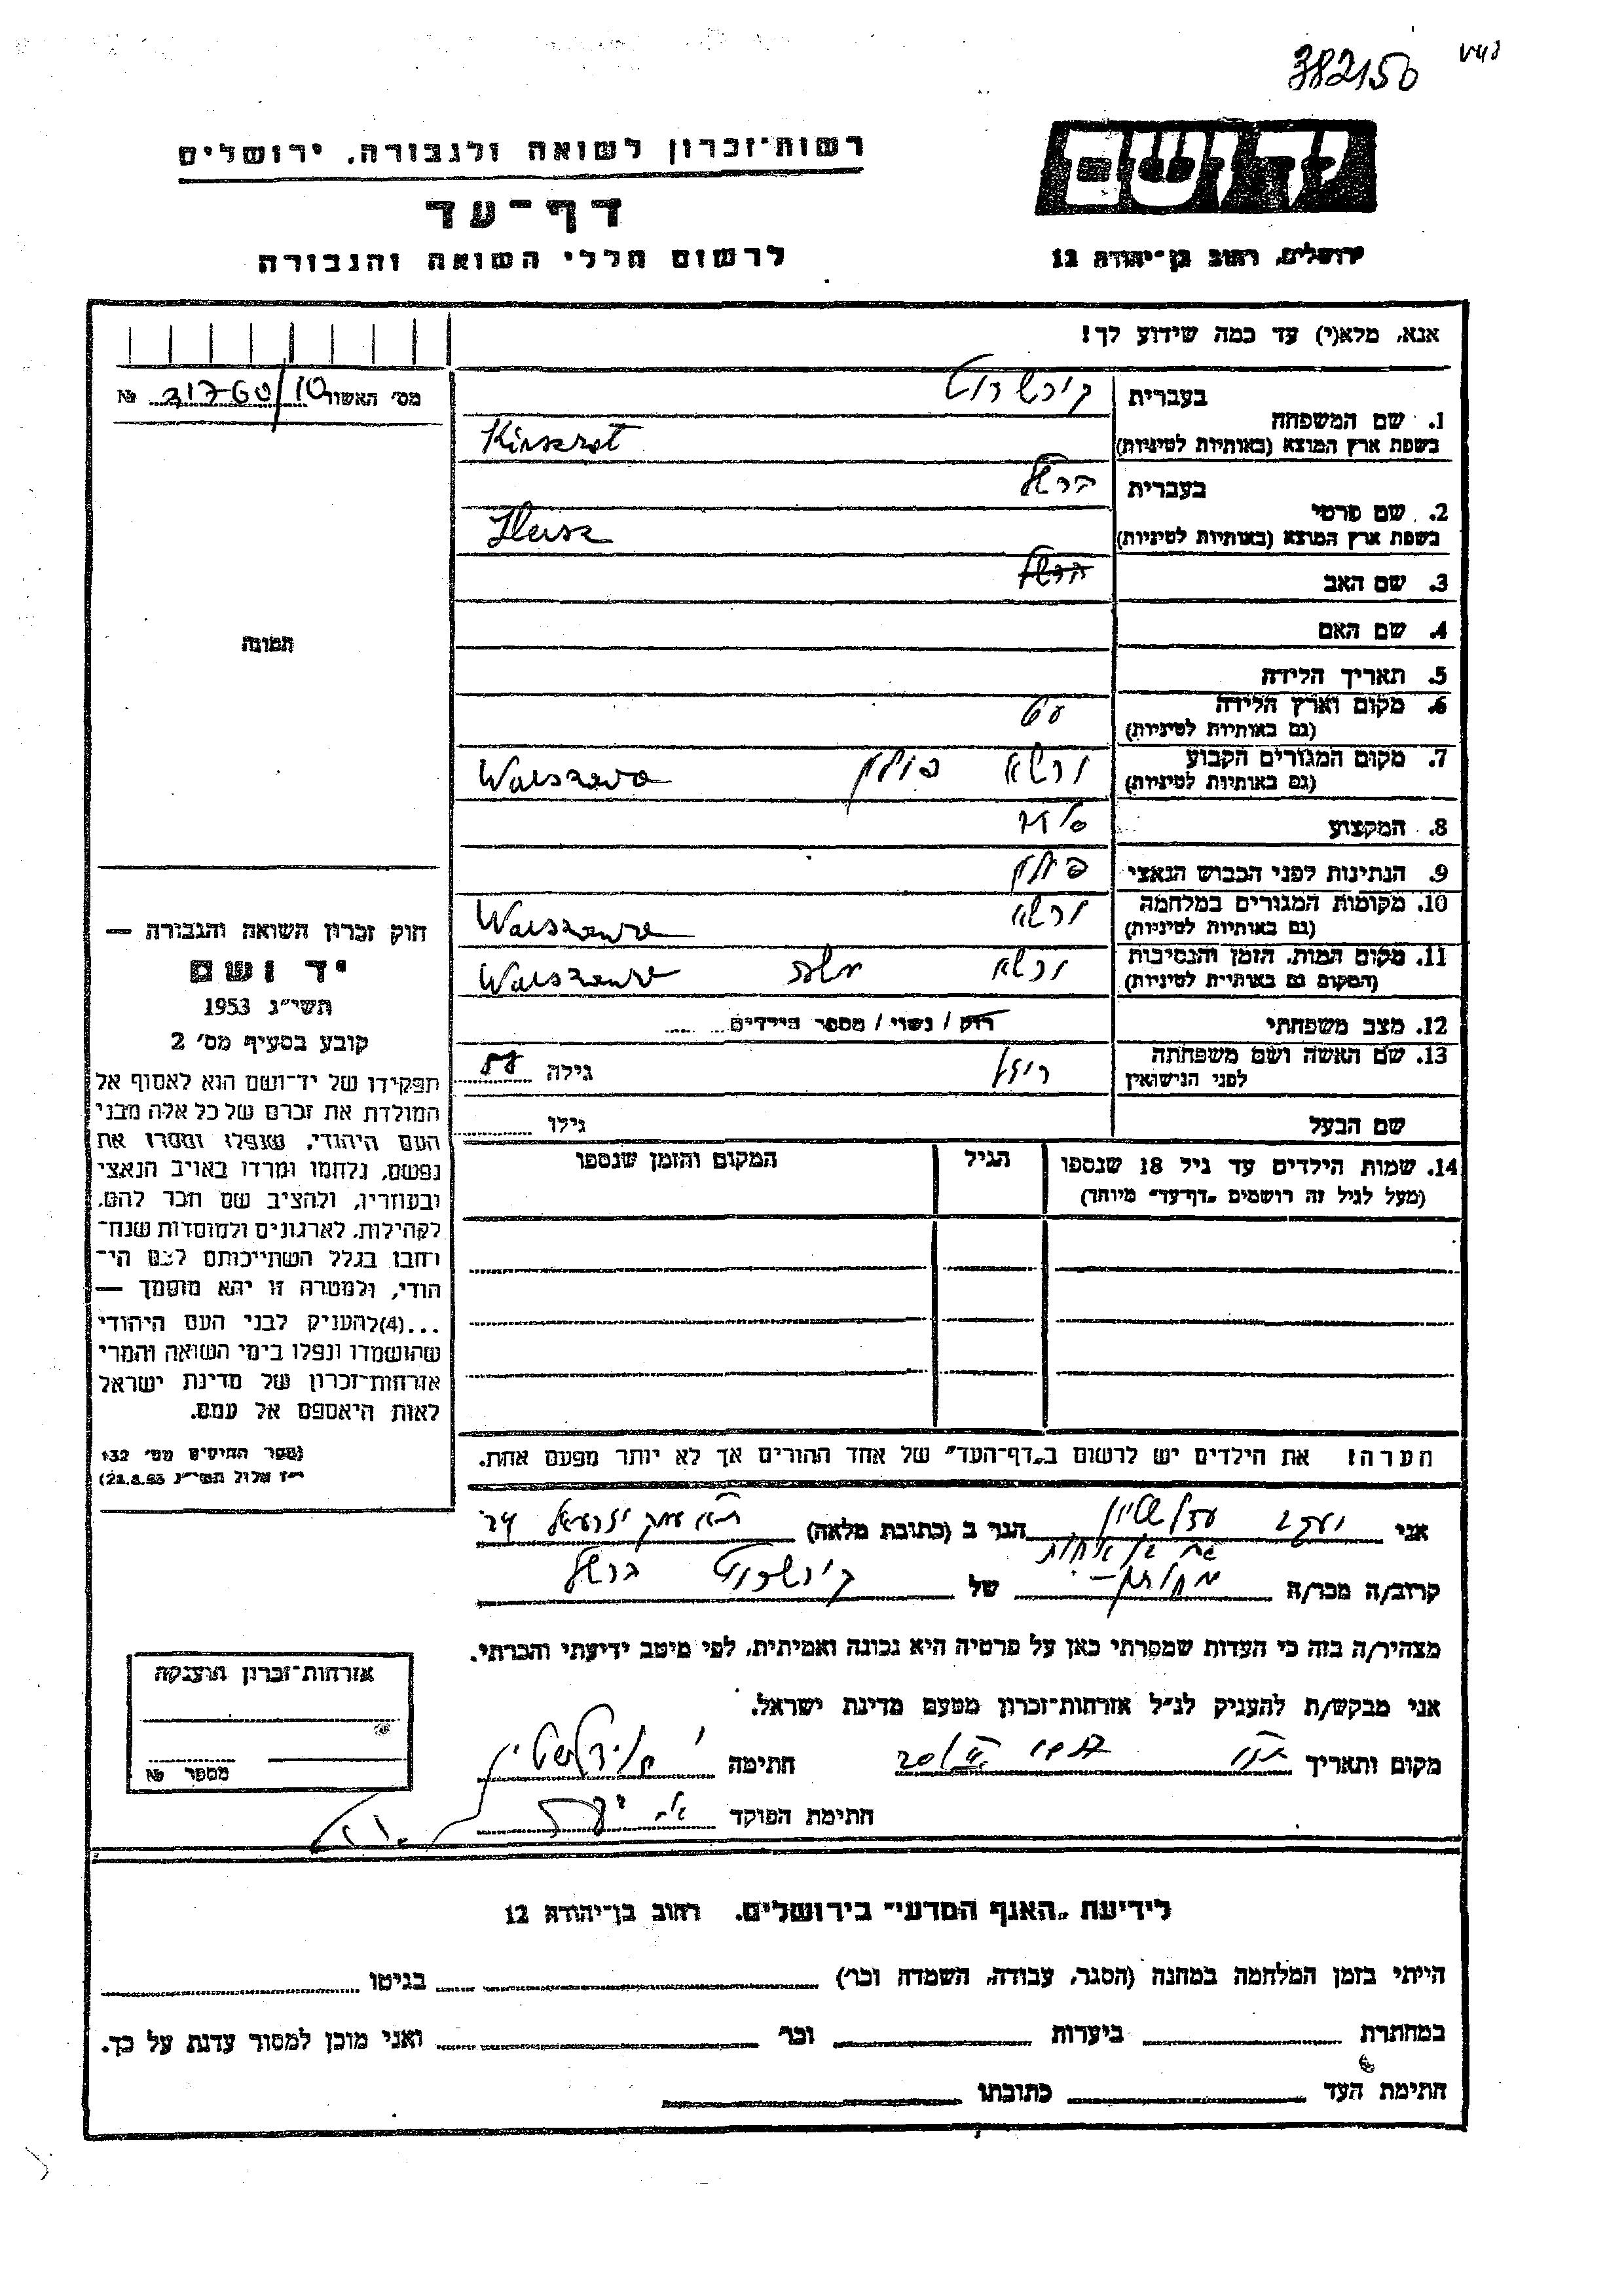 382150
רשות־זכרון לשואה ולגבורה, ירושלים
יד ושם
דף־עד
לרשום חללי השואה והגבורה
ירושלים, רחוב בן־יהודה 12
אנא, מלא(י) עד כמה שידוע לך!
מס׳ האשור 31760/10 №
1. שם המשפחה בעברית קירשרוט
בשפת ארץ המוצא (באותיות לטיניות) Kirszrot
2. שם פרטי בעברית הרשל
בשפת ארץ המוצא (באותיות לטיניות) Hersz
3. שם האב
4. שם האם
5. תאריך הלידה
6. מקום וארץ הלידה
(גם באותיות לטיניות)
7. מקום המגורים הקבוע ורשא פולין Warszawa
(גם באותיות לטיניות)
8. המקצוע
9. הנתינות לפני הכבוש הנאצי פולין
10. מקומות המגורים במלחמה ורשא Warszawa
(גם באותיות לטיניות)
11. מקום המות, הזמן והנסיבות ורשא Warszawa
(המקום גם באותיות לטיניות)
12. מצב משפחתי רווק / נשוי / מספר הילדים
13. שם האשה ושם משפחתה
לפני הנישואין גילה
שם הבעל גילו
14. שמות הילדים עד גיל 18 שנספו הגיל המקום והזמן שנספו
(מעל לגיל זה רושמים „דף־עד” מיוחד)
הערה! את הילדים יש לרשום ב„דף־העד” של אחד ההורים אך לא יותר מפעם אחת.
תמונה
חוק זכרון השואה והגבורה —
יד ושם
תשי״ג 1953
קובע בסעיף מס׳ 2
תפקידו של יד־ושם הוא לאסוף אל
המולדת את זכרם של כל אלה מבני
העם היהודי, שנפלו ומסרו את
נפשם, נלחמו ומרדו באויב הנאצי
ובעוזריו, ולהציב שם וזכר להם,
לקהילות, לארגונים ולמוסדות שנח־
רחבו בגלל השתייכותם לעם הי־
הודי, ולמטרה זו יהא מוסמך —
...(4)להעניק לבני העם היהודי
שהושמדו ונפלו בימי השואה והמרי
אזרחות־זכרון של מדינת ישראל
לאות היאספם אל עמם.
(ספר החוקים מס׳ 132
י״ז אלול תשי״ג 28.8.53)
אני יעקב הגר ב (כתובת מלאה)
קרוב/ה מכר/ה של קירשרוט הרשל
מצהיר/ה בזה כי העדות שמסרתי כאן על פרטיה היא נכונה ואמיתית, לפי מיטב ידיעתי והכרתי.
אני מבקש/ת להעניק לנ״ל אזרחות־זכרון מטעם מדינת ישראל.
מקום ותאריך חתימה
חתימת הפוקד
אזרחות־זכרון הוענקה
מספר №
לידיעת „האגף המדעי” בירושלים, רחוב בן־יהודה 12
הייתי בזמן המלחמה במחנה (הסגר, עבודה, השמדה וכו׳) בגיטו
במחתרת ביערות וכו׳ ואני מוכן למסור עדות על כך.
חתימת העד כתובתו